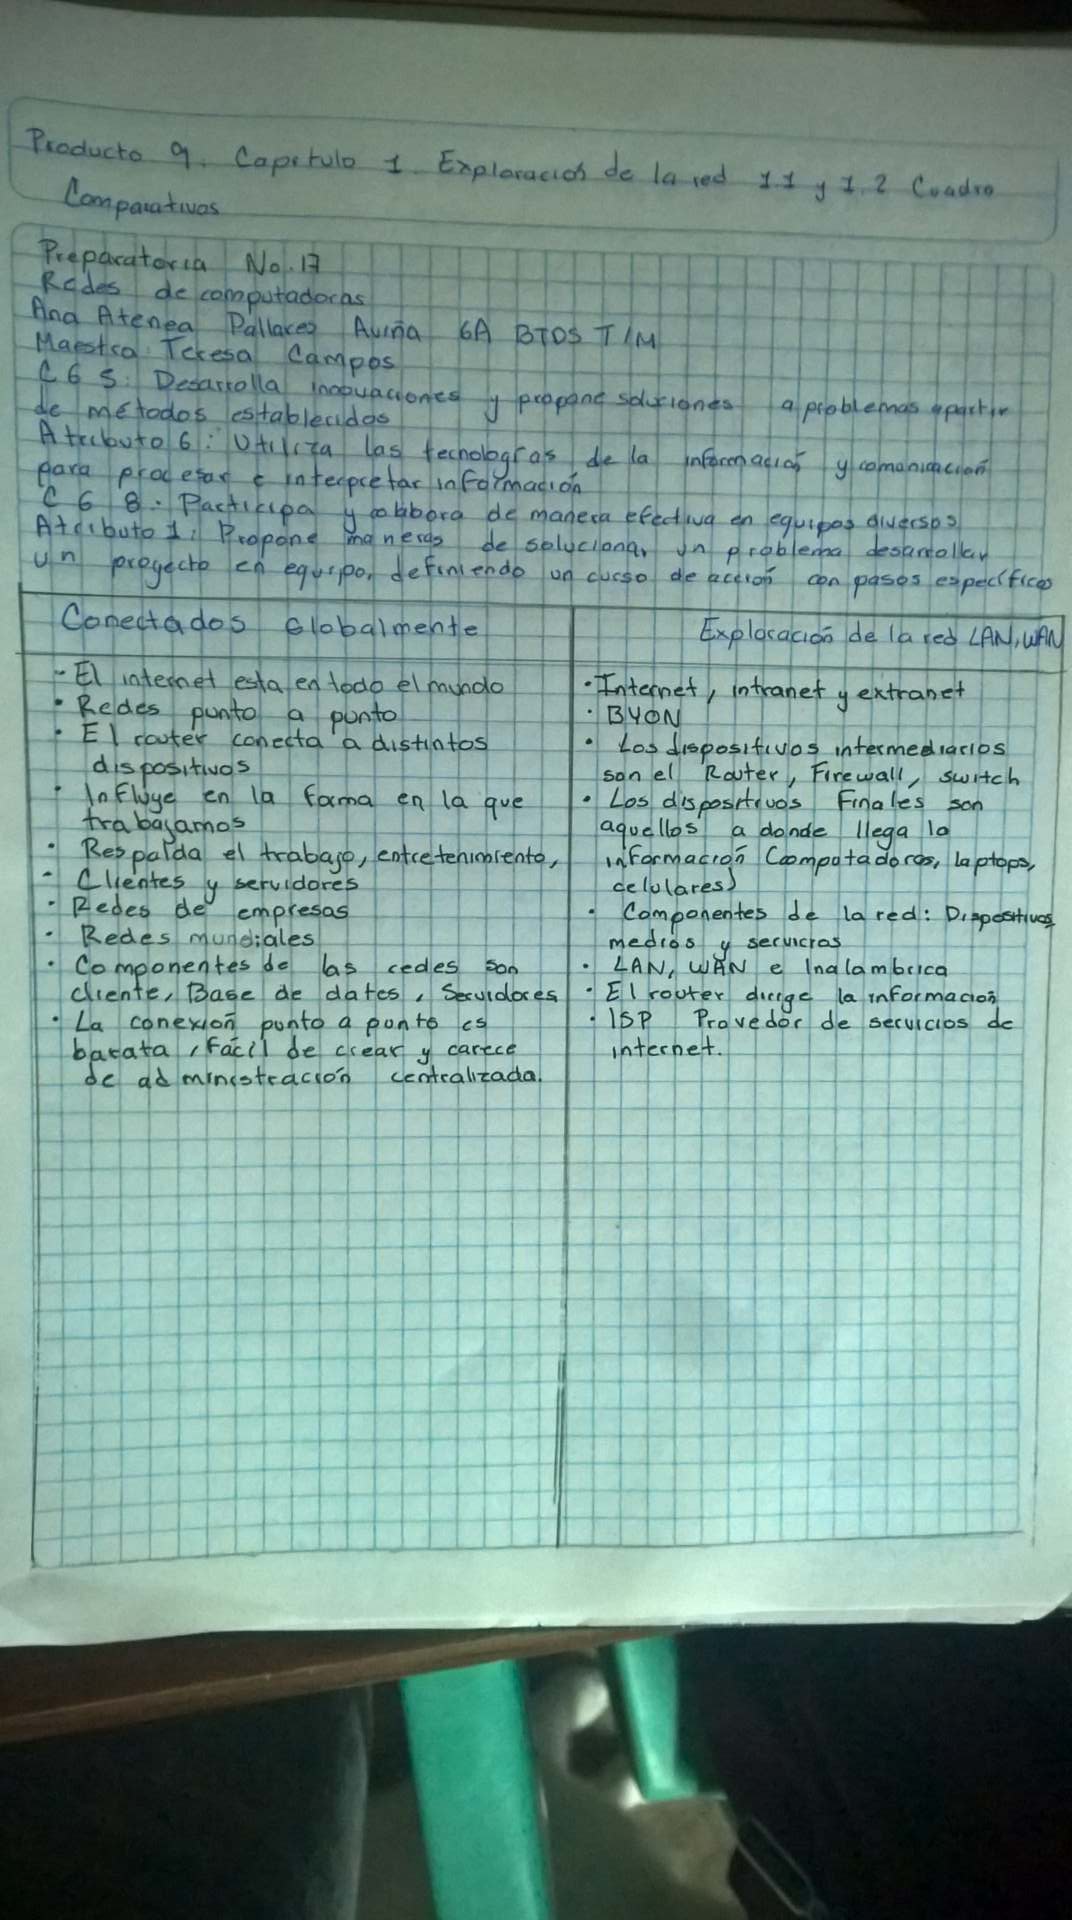 Producto 9. Capitulo 1. Exploración de la red 1.1 y 1.2 Cuadro
Comparativos
Preparatoria No. 17
Redes de computadoras
Ana Atenea Pallares Aviña 6A BTDS T/M
Maestra Teresa Campos
C G 5: Desarrolla innovaciones y propone soluciones a problemas apartir
de métodos establecidos
Atributo 6: Utiliza las tecnologías de la información y comunicación
para procesar e interpretar información
C G 8: Participa y colabora de manera efectiva en equipos diversos
Atributo 1: Propone maneras de solucionar un problema desarrollar
un proyecto en equipo, definiendo un curso de acción con pasos específicos
Conectados Globalmente
· El internet esta en todo el mundo
· Redes punto a punto
· El router conecta a distintos
dispositivos
· Influye en la forma en la que
trabajamos
· Respalda el trabajo, entretenimiento,
· Clientes y servidores
· Redes de empresas
· Redes mundiales
· Componentes de las redes son
cliente, Base de dates, Servidores
· La conexión punto a punto es
barata, fácil de crear y carece
de administración centralizada.
Exploración de la red LAN, WAN
· Internet, intranet y extranet
· BYON
· Los dispositivos intermediarios
son el Router, Firewall, switch
· Los dispositivos Finales son
aquellos a donde llega la
información (computadoras, laptops,
celulares)
· Componentes de la red: Dispositivos
medios y servicios
· LAN, WAN e Inalambrica
· El router dirige la información
· ISP Provedor de servicios de
internet.